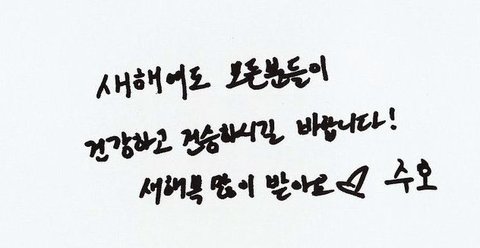 새해에도 모든분들이
건강하고 건승하시길 바랍니다!
새해복 많이 받아요♡ 수호